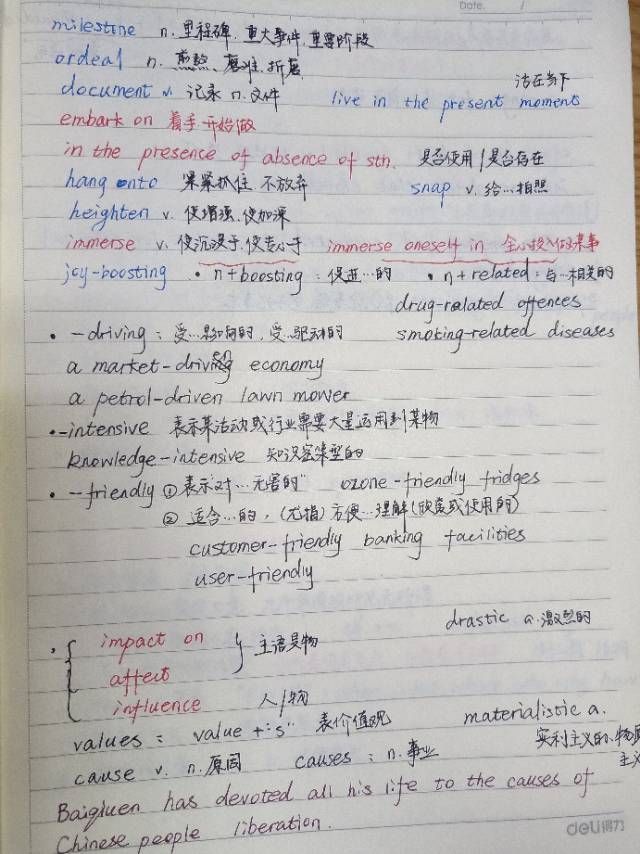 Date.
milestone n. 里程碑. 重大事件. 重要阶段
ordeal n. 煎熬. 磨难. 折磨
活在当下
document v. 记录 n. 文件 live in the present moment
embark on 着手. 开始做
in the presence of absence of sth. 是否使用/是否存在
hang onto 紧紧抓住. 不放弃 snap v. 给…拍照
heighten v. 使增强. 使加深
immerse v. 使沉浸于. 使专心于 immerse oneself in 全心投入做某事
joy-boosting • n+boosting: 促进…的 • n+related: 与…相关的
drug-related offences
• -driving: 受…影响的, 受…驱动的 smoking-related diseases
a market-driving economy
a petrol-driven lawn mower
•-intensive 表示某活动或行业需要大量运用到某物
knowledge-intensive 知识密集型的
• -friendly ① 表示"对…无害的" ozone-friendly fridges
② 适合…的, (尤指) 方便…理解(欣赏或使用的)
customer-friendly banking facilities
user-friendly
drastic a. 激烈的
• impact on 主语是物
affect
influence 人/物
values: value +"s" 表价值观 materialistic a.
实利主义的. 物质
主义
cause v. n. 原因 causes: n. 事业
Baiqiuen has devoted all his life to the causes of
Chinese people liberation.
deli得力